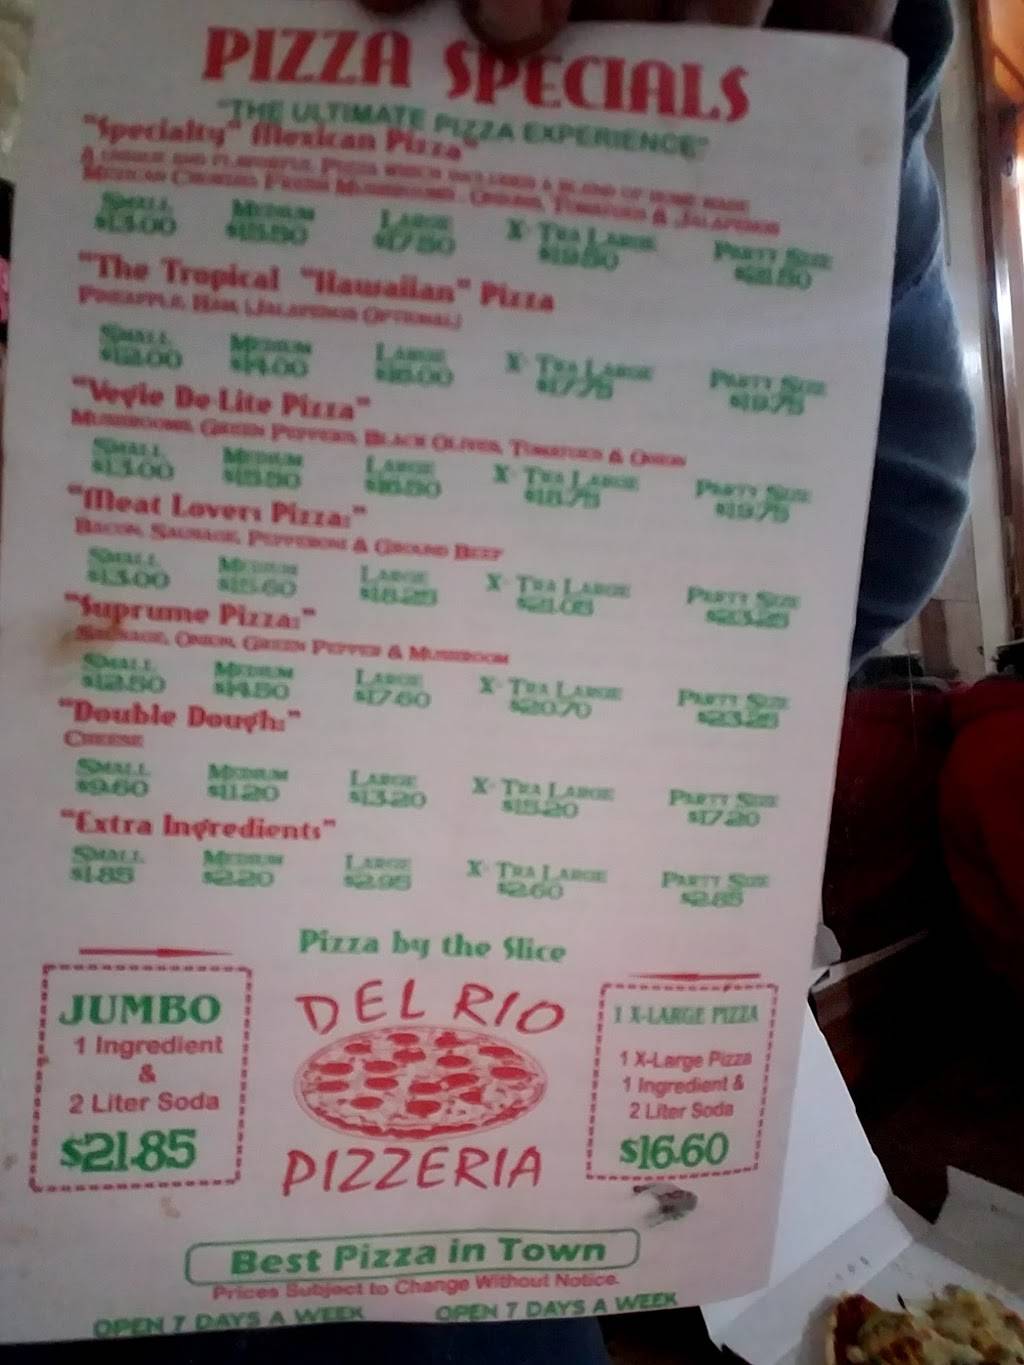 PIZZA SPECIALS
"THE ULTIMATE PIZZA EXPERIENCE"
"Specialty" Mexican Pizza"
A UNIQUE AND FLAVORFUL PIZZA WHICH INCLUDES A BLEND OF HOME MADE
MEXICAN CHORIZO FRESH MUSHROOMS, ONIONS, TOMATOES & JALAPENOS
SMALL MEDIUM LARGE X-TRA LARGE PARTY SIZE
$13.00 $15.50 $17.50 $19.50 $21.50
"The Tropical "Hawaiian" Pizza
PINEAPPLE, HAM, (JALAPENOS OPTIONAL)
SMALL MEDIUM LARGE X-TRA LARGE PARTY SIZE
$12.00 $14.00 $16.00 $17.75 $19.75
"Vegie De-Lite Pizza"
MUSHROOMS, GREEN PEPPERS, BLACK OLIVES, TOMATOES & ONION
SMALL MEDIUM LARGE X-TRA LARGE PARTY SIZE
$13.00 $15.50 $16.50 $18.75 $19.75
"Meat Lovers Pizza:"
BACON, SAUSAGE, PEPPERONI & GROUND BEEF
SMALL MEDIUM LARGE X-TRA LARGE PARTY SIZE
$13.00 $15.60 $18.25 $21.05 $23.25
"Suprume Pizza:"
SAUSAGE, ONION, GREEN PEPPER & MUSHROOM
SMALL MEDIUM LARGE X-TRA LARGE PARTY SIZE
$12.50 $14.50 $17.60 $20.70 $23.25
"Double Dough:"
CHEESE
SMALL MEDIUM LARGE X-TRA LARGE PARTY SIZE
$9.60 $11.20 $13.20 $15.20 $17.20
"Extra Ingredients"
SMALL MEDIUM LARGE X-TRA LARGE PARTY SIZE
$1.85 $2.20 $2.95 $2.60 $2.85
Pizza by the Slice
JUMBO
1 Ingredient
&
2 Liter Soda
$21.85
DEL RIO
PIZZERIA
1 X-LARGE PIZZA
1 X-Large Pizza
1 Ingredient &
2 Liter Soda
$16.60
Best Pizza in Town
Prices Subject to Change Without Notice.
OPEN 7 DAYS A WEEK OPEN 7 DAYS A WEEK